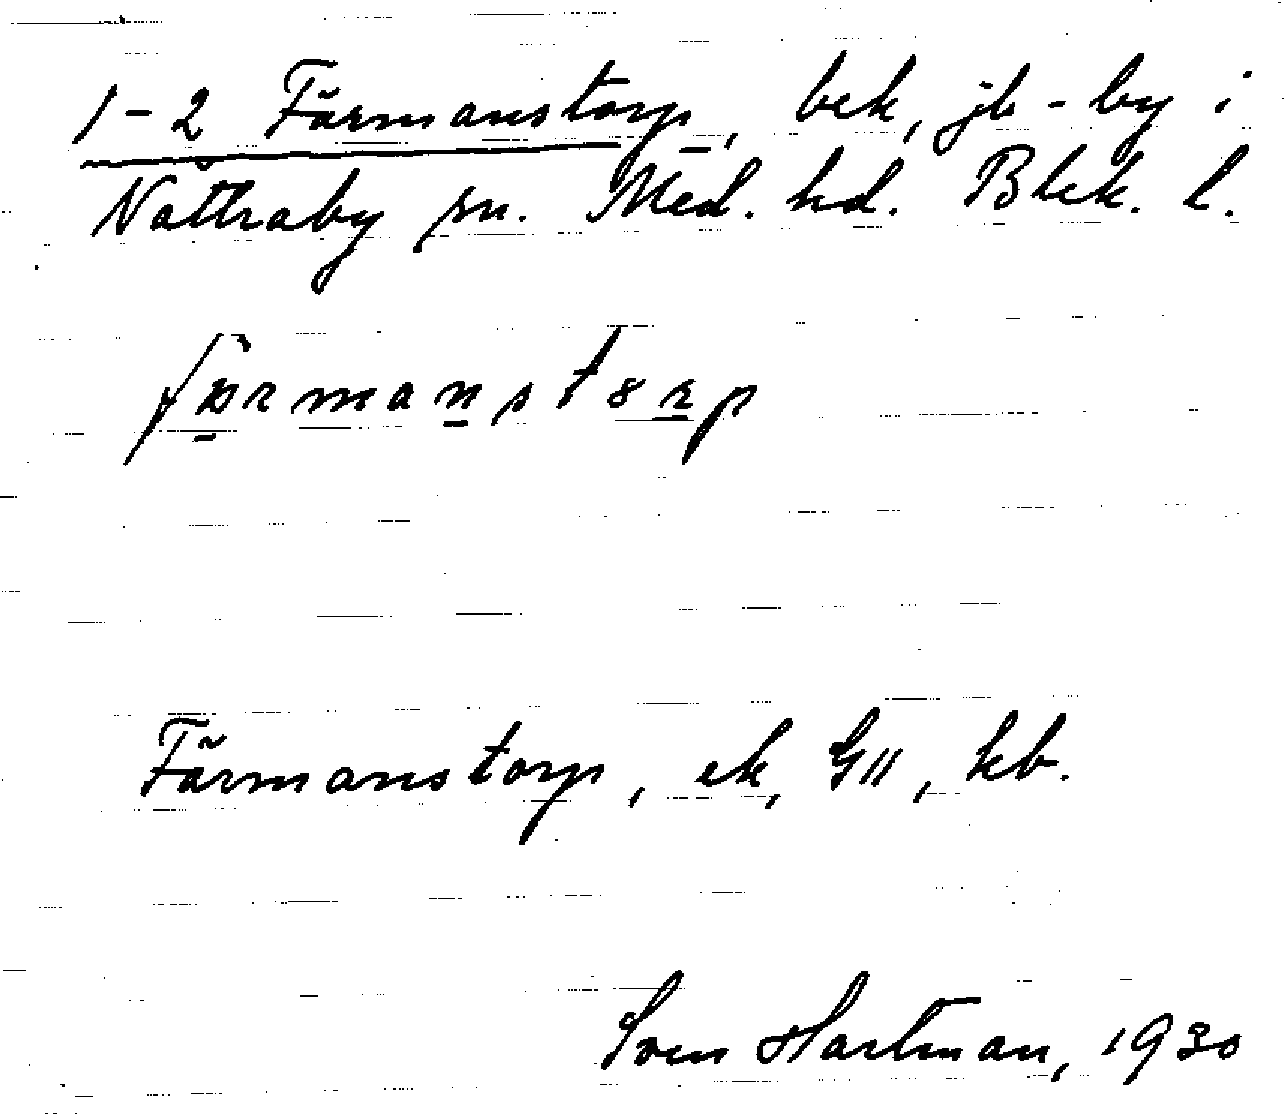 1-2 Färmanstorp, bek, jb-by i
Nättraby sn. Med. hd. Blek. l.
Färmanstorp, ek, GII, kb.
Sven Hartman, 1930